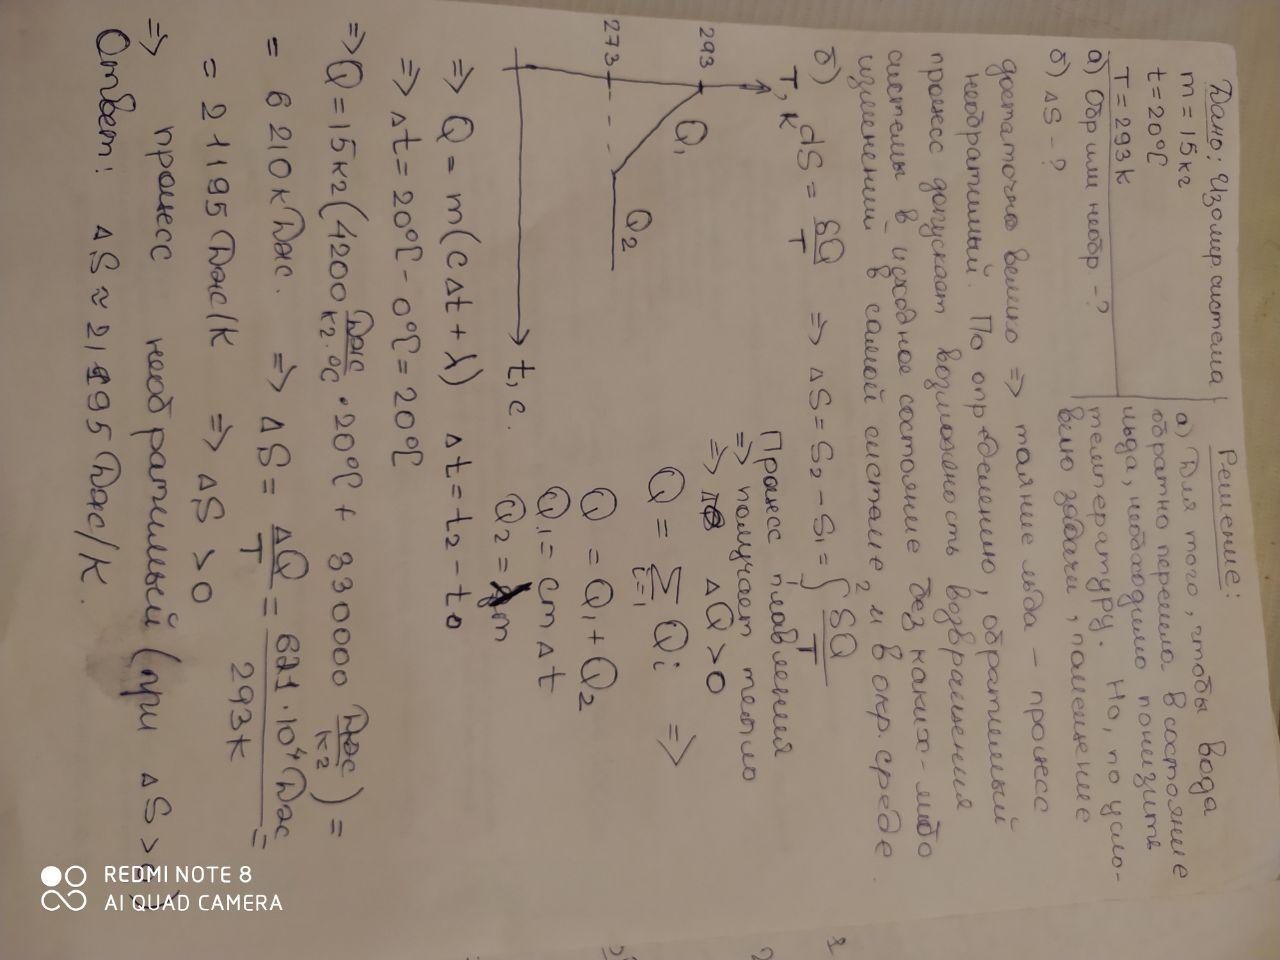 Дано: Изолир. система
m = 15 кг
t = 20°C
T = 293 К
а) Обр или необр - ?
б) ΔS - ?
Решение:
а) Для того, чтобы вода
обратно перешла в состояние
льда, необходимо понизить
температуру. Но, по усло-
вию задачи, помещение
достаточно велико => таяние льда – процесс
необратимый. По определению, обратимый
процесс допускает возможность возвращения
системы в исходное состояние без каких-либо
изменений в самой системе, и в окр. среде
б) dS = δQ/T => ΔS = S₂ − S₁ = ∫² δQ/T
T, К
293
273
Q₁
Q₂
t, с.
Процесс плавления
=> получает тепло
=> ΔQ > 0
Q = Σ Qi =>
i=1
Q = Q₁ + Q₂
Q₁ = cmΔt
Q₂ = λm
=> Q = m(cΔt + λ) Δt = t₂ − t₀
=> Δt = 20°C − 0°C = 20°C
=> Q = 15кг(4200 Дж/кг·°C · 20°C + 330000 Дж/кг) =
= 6210 кДж. => ΔS = ΔQ/T = 621·10⁴ Дж/293К =
= 21195 Дж/К => ΔS > 0
=> процесс необратимый (при ΔS >
Ответ: ΔS ≈ 21195 Дж/К.
REDMI NOTE 8
AI QUAD CAMERA
2